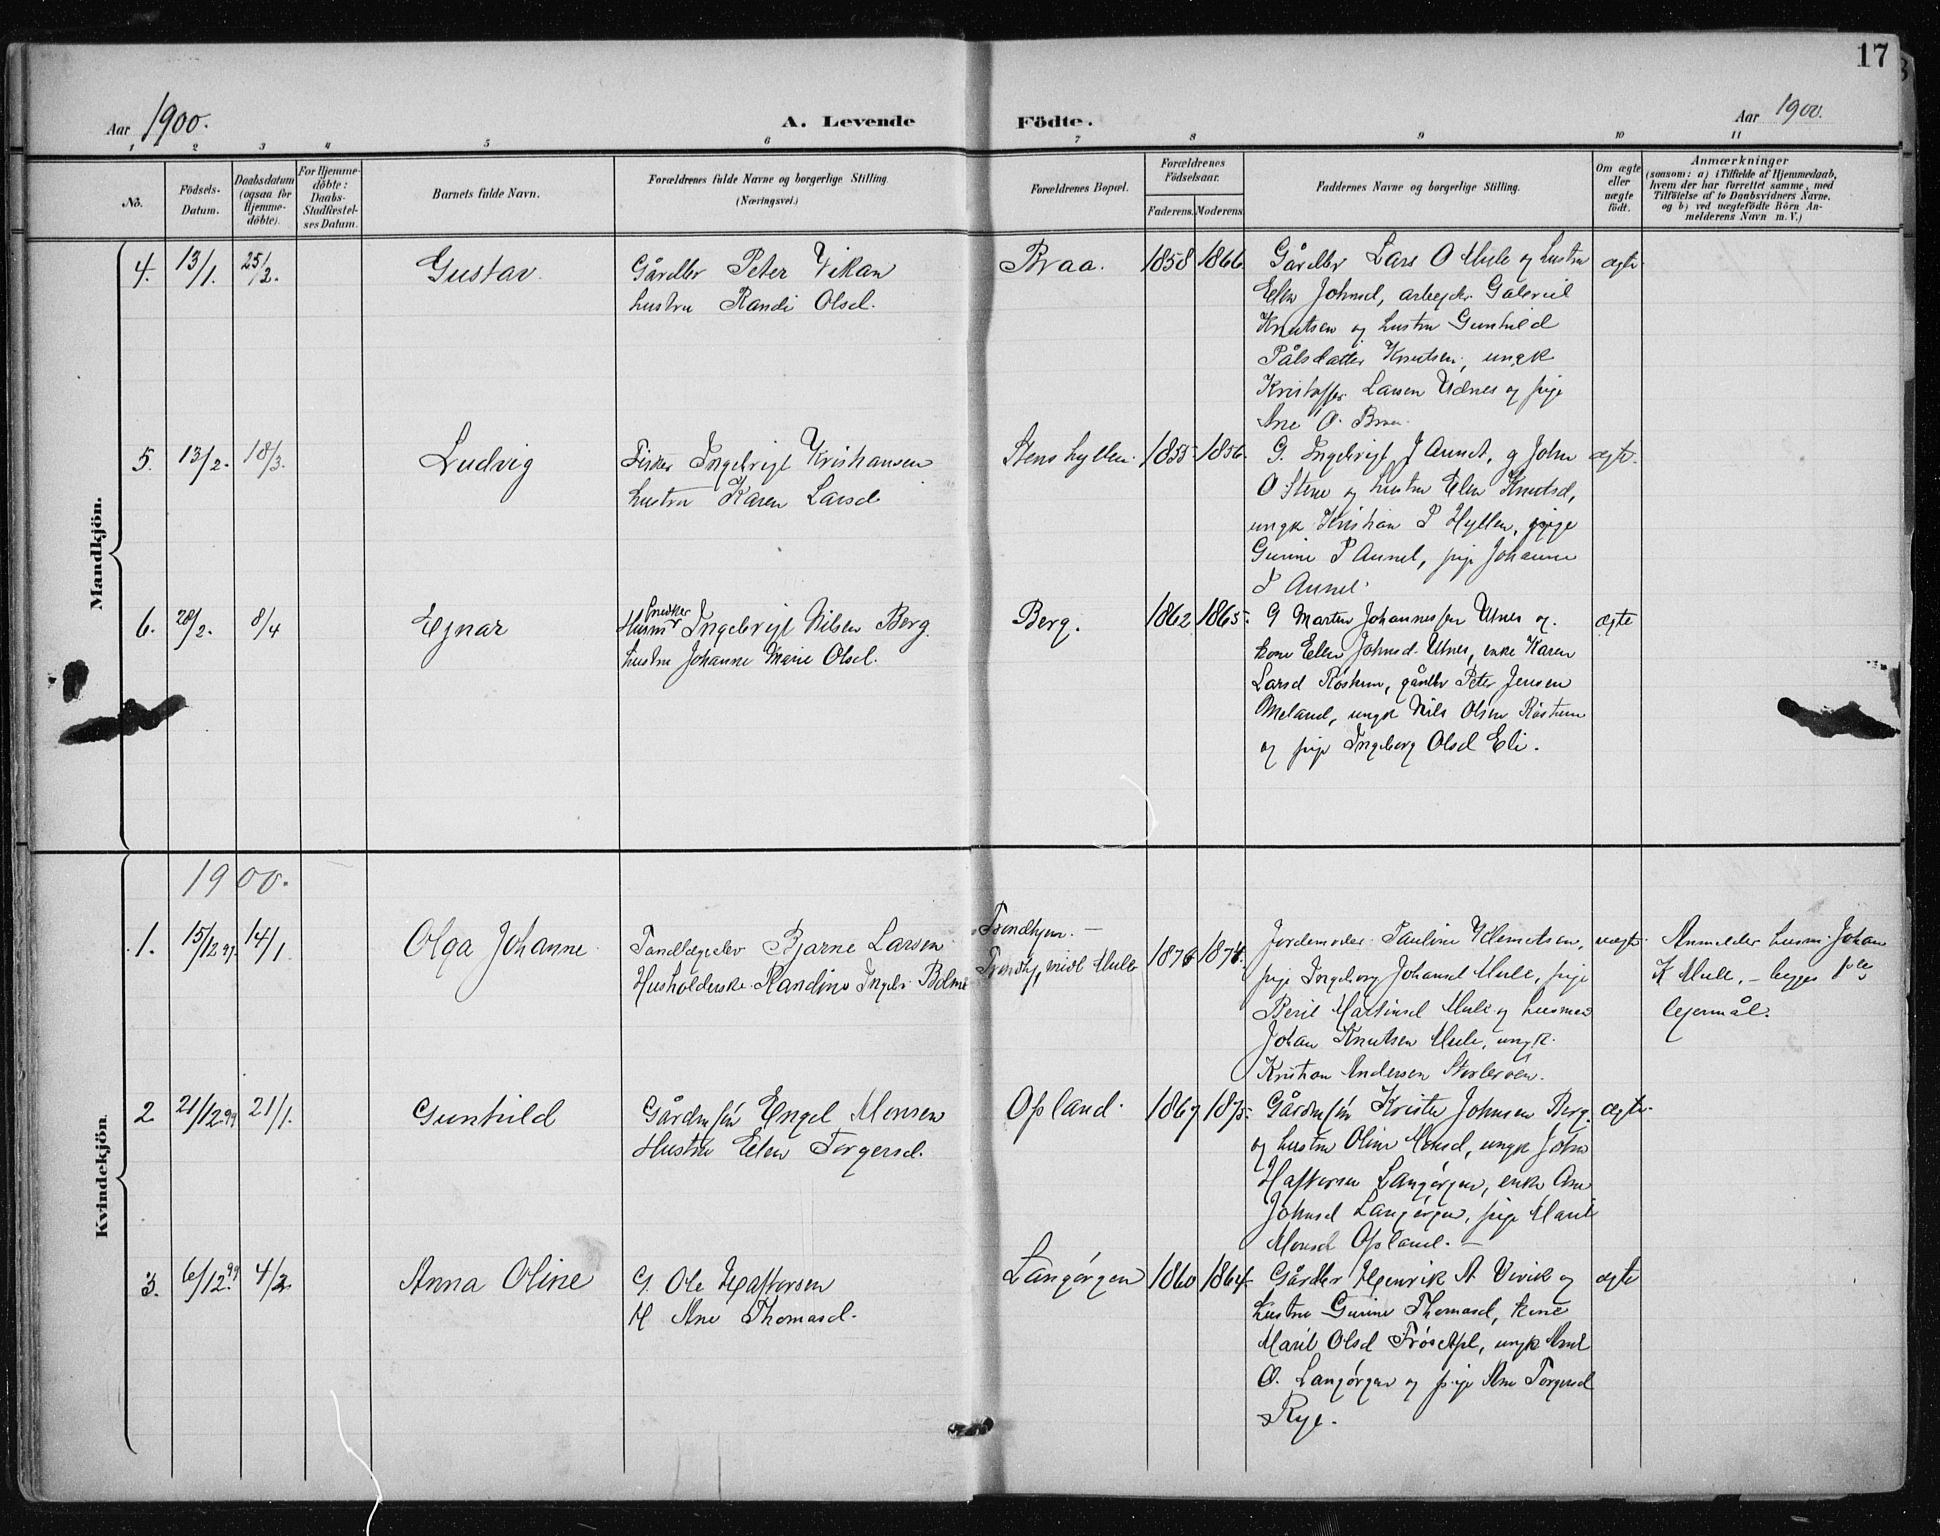 17
Aar 1900.
A. Levende Födte.
Aar 1900.
1 2 3 4 5 6 7 8 9 10 11
No.
Födsels-
Datum.
Daabsdatum
(ogsaa for
Hjemme-
døbte).
For Hjemme-
døbte:
Daabs-
Stadfæstel-
ses Datum.
Barnets fulde Navn.
Forældrenes fulde Navne og borgerlige Stilling.
(Næringsvei.)
Forældrenes Bopæl.
Forældrenes
Födselsaar.
Faderens. Moderens.
Faddernes Navne og borgerlige Stilling.
Om ægte
eller
uægte
født.
Anmærkninger
(saasom: a) i Tilfælde af Hjemmedaab,
hvem der har forrettet samme, med
Tilføielse af to Daabsvidners Navne,
og b) ved uægtefødte Börn An-
melderens Navn m. V.)
Mandkjön.
4. 13/1. 25/2. Gustav. Gårdbr Peter Vikan
hustru Randi Olsd.
Braa. 1858 1866
Gårdbr Lars O Mule og hustru
Elen Johnsd, arbejdr Gabriel
Knutsen og hustru Gunhild
Pålsdatter Knutsen, ungk
Kristoffer Larsen Udnes og pige
Ane O. Braa.
ægte
5. 13/2. 18/3. Ludvig Fisker Ingebrigt Kristiansen
hustru Karen Larsd
Stenshyllen. 1855 1856.
G. Ingebrigt J Aunet, g John
O Stene og hustru Elen Knutsd,
ungk Kristian P Hyllen, pige
Gurine P Aunet, pige Johanne
P Aunet.
ægte.
6. 28/2. 8/4 Ejnar
snedker
Husm Ingebrigt Nilsen Berg.
hustru Johanne Marie Olsd.
Berg. 1862 1865.
G Martin Johannessen Utnes og
kone Elen Johnsd. Utnes, enke Karen
Larsd Røskum, gårdbr Peter Jensen
Meland, ungk Nils Olsen Røskum
og pige Ingeborg Olsd Eli.
ægte
Kvindekjön.
1900.
1. 15/12 99. 14/1 Olga Johanne. Tandlægeelev Bjarne Larsen
Husholderske Randine Ingebr. Bolme
Trondhjem. —
Trondhj, midl Mule
1876 1874.
Jordemoder Pauline Klemetsen,
pige Ingeborg Johansd Mule, pige
Berit Martinsd Mule og husmand
Johan Knutsen Mule, ungk.
Kristian Andersen Storlerøen.
uægte.
Anmelder husm. Johan
K Mule, — begges
lejermål.
2 21/12 99 21/1. Gunhild Gårdmsøn Engel Monsen
Hustru Elen Torgersd.
Opland. 1867 1875.
Gårdmsøn Krister Johnsen Berg.
og hustru Oline Monsd, ungk John
Haftorsen Langørgen, enke Ane
Johnsd Langørgen, pige Marit
Monsd Opland. —
ægte.
3. 6/12 99. 4/2 Anna Oline G. Ole Haftorsen
H Ane Thomasd.
Langørgen 1860 1864.
Gårdbr Henrik A Vivik og
hustru Gurine Thomasd, kone
Marit Olsd Frøset, ungk Arnt
O. Langørgen og pige Ane Torgersd
Rye.
ægte